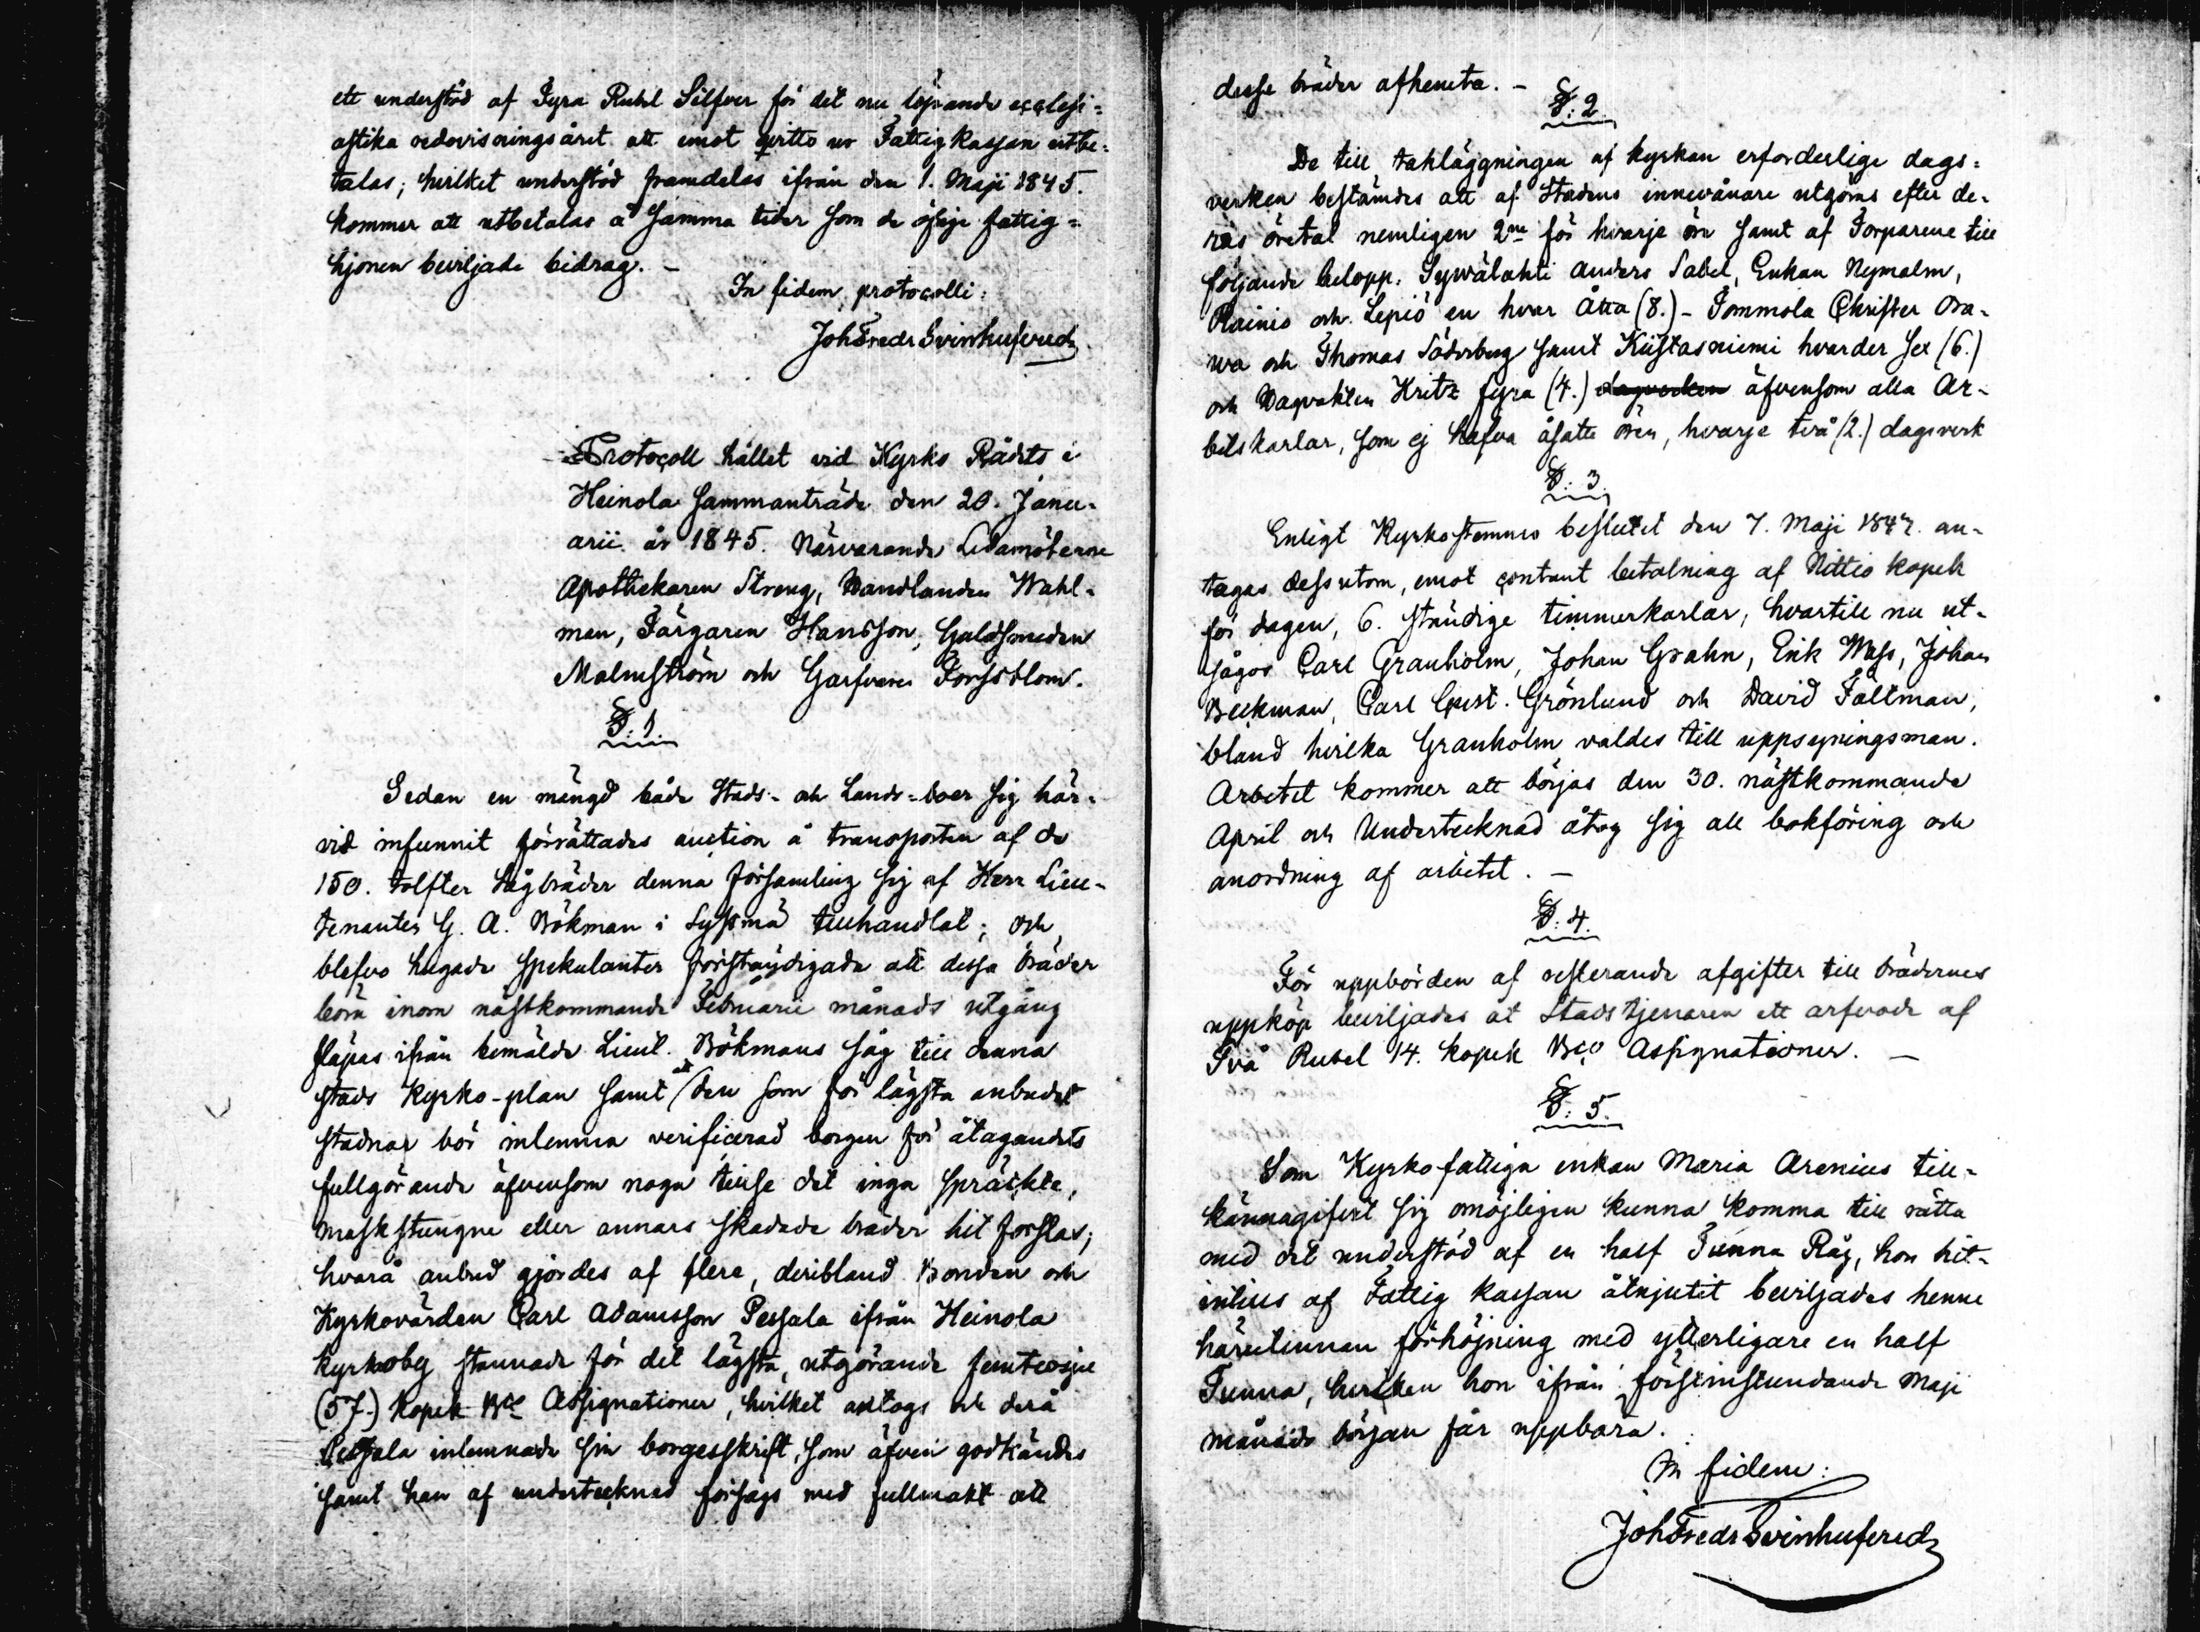 ett understöd af Fyra Rubel Silfver för det nu löpande ecclesi=
astika redovisningsåret att emot qvitto ur Fattigkassan utbe=
talas; hvilket understöd framdeles ifrån den 1. Maji 1845.
kommer att utbetalas å samma tider som de öfrige fattig=
hjonen beviljade bidrag. –
In fidem protocolli:
Joh Fredr Svinhufvud
Protocoll hållet vid Kyrko Rådets i
Heinola sammanträde den 20. Janu-
arii år 1845. Närvarande Ledamöterne
Apothekaren Streng, Handlanden Wahl-
man, Färgaren Hansson, Guldsmeden
Malmström och Garfvaren Forsblom.
§: 1.
Sedan en mängd både Stads- och Lands-boer sig här-
vid infunnit förrättades auction å transporten af de
150. tolfter Sågbräder denna församling sig af Herr Lieu-
tenanten G. A. Bökman i Sysmä tillhandlat; och
blefvo hugade spekulanter förständigade att dessa bräder
böra inom nästkommande Februarii månads utgång
släpas ifrån bemälde Lieut. Bökmans såg till denna
stads Kyrko-plan samt att den som för lägsta anbudet
stadnar bör inlemna verificerad borgen för åtagandets
fullgörande äfvensom noga tillse det inga spräckte,
maskstungne eller annars skadade bräder hit forslas;
hvarå anbud gjordes af flere, deribland Bonden och
Kyrkovärden Carl Adamsson Pessala ifrån Heinola
kyrkoby stannade för det lägsta, utgörande femtiosju
(57.) Kopek Bco Assignationer, hvilket antogs och derå
Pessala inlemnade sin borgesskrift, som äfven godkändes
samt han af undertecknad försågs med fullmakt att
desse bräder afhemta. –
§: 2.
De till takläggningen af kyrkan erforderlige dags=
verken bestämdes att af Stadens innevånare utgöras efter de-
ras öretal nemligen 2ne för hvarje öre samt af Torparene till
följande belopp: Sywälahti Anders Sabel, Enkan Nymalm,
Rainio och Lepiö en hvar Åtta (8.) – Tommola Christer Ora-
wa och Thomas Söderberg samt Kustasniemi hvarder sex (6.)
och Vaqvakten Kritz fyra (4.) dagsverken äfvensom alla Ar-
betskarlar, som ej hafva åsatte ören, hvarje två (2.) dagsverk
§: 3.
Enligt Kyrkostemmo beslutet den 7. Maji 1847. an-
tagas dessutom, emot contant betalning af Nittio kopek
för dagen, 6. ständige timmerkarlar, hvartill nu ut-
sågos Carl Granholm, Johan Grahn, Erik Wass, Johan
Beckman, Carl Gust. Grönlund och David Fältman,
bland hvilka Granholm valdes till uppsyningsman.
Arbetet kommer att börjas den 30. nästkommande
April och Undertecknad åtog sig all bokföring och
anordning af arbetet. –
§: 4.
För uppbörden af resterande afgifter till brädernes
uppköp beviljades åt Stadstjenaren ett arfvode af
Två Rubel 14. kopek Bco Assignationer. –
§: 5.
Som Kyrkofattiga enkan Maria Arenius till-
kännagifvit sig omöjligen kunna komma till rätta
med det understöd af en half Tunna Råg, hon hit-
intills af Fattig kassan åtnjutit beviljades henne
härutinnan förhöjning med ytterligare en half
Tunna, hvilken hon ifrån förstinstundande Maji
månads början får uppbära.
In fidem:
Joh Fredr Svinhufvud